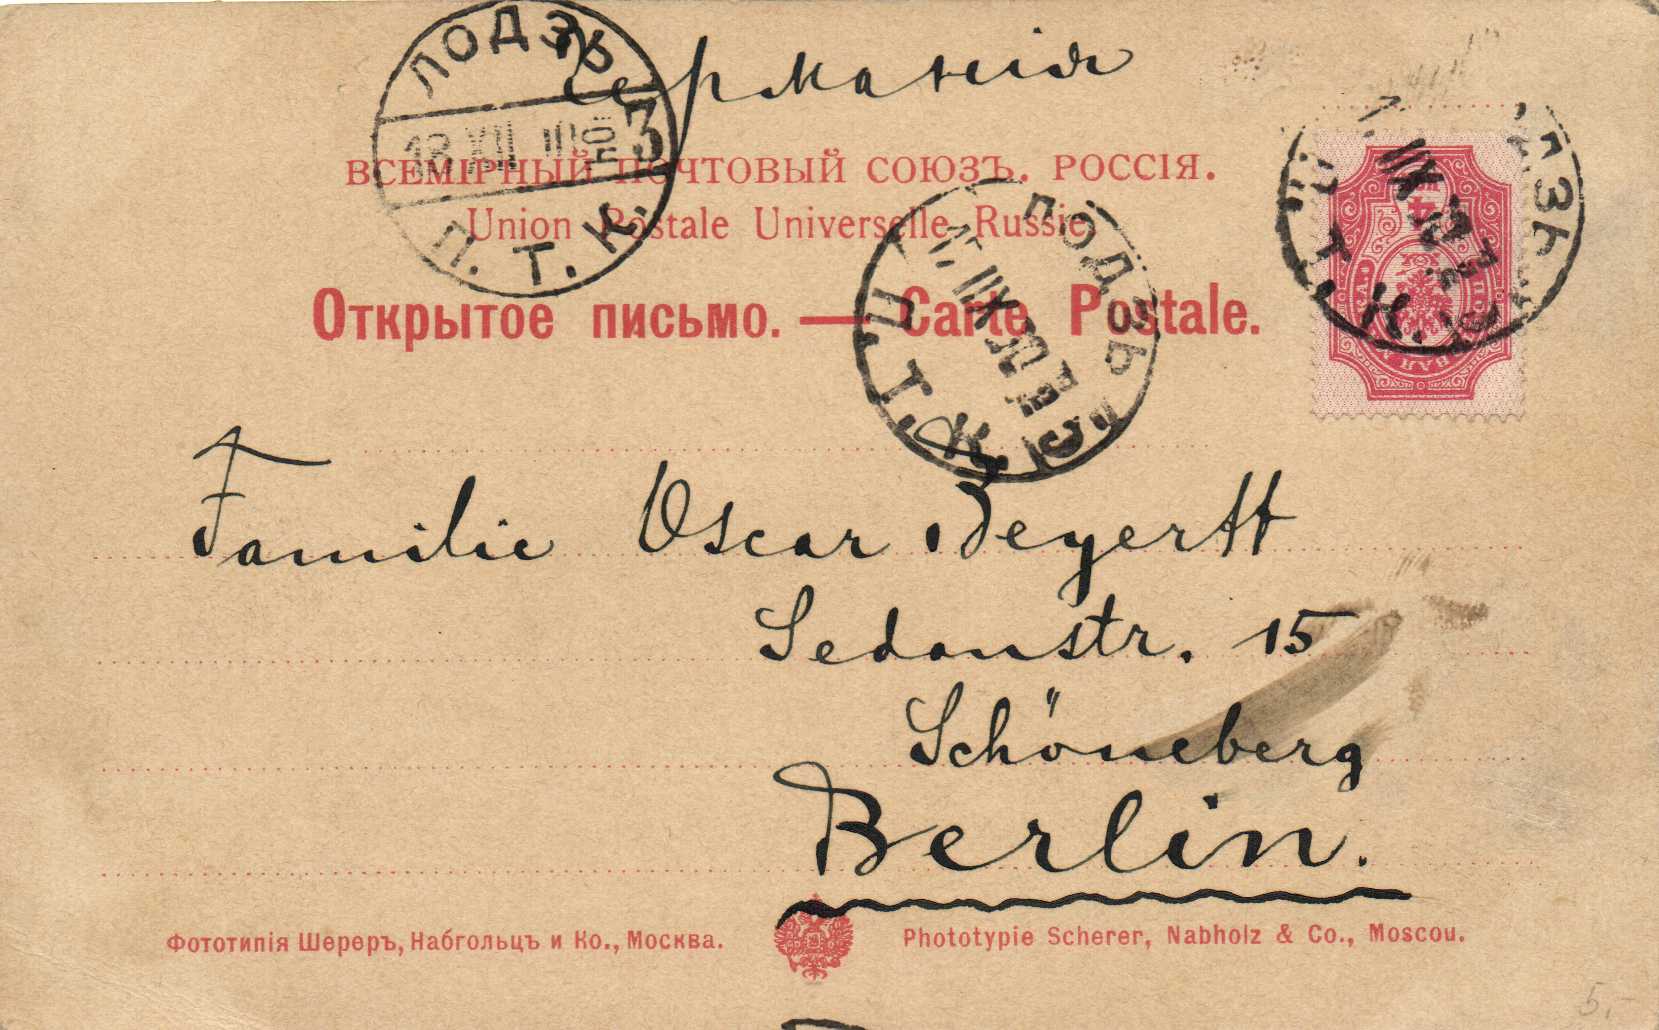 Германія
ЛОДЗЬ
18 XII
3
П. Т. К.
ВСЕМІРНЫЙ ПОЧТОВЫЙ СОЮЗЪ. РОССІЯ.
Union Postale Universelle Russie.
Открытое письмо. — Carte Postale.
ЛОДЗЬ
XII
П. Т. К.
Familie Oscar
Sedanstr. 15
Schöneberg
Berlin.
Фототипія Шереръ, Набгольцъ и Ко., Москва.
Phototypie Scherer, Nabholz & Co., Moscou.
5.-